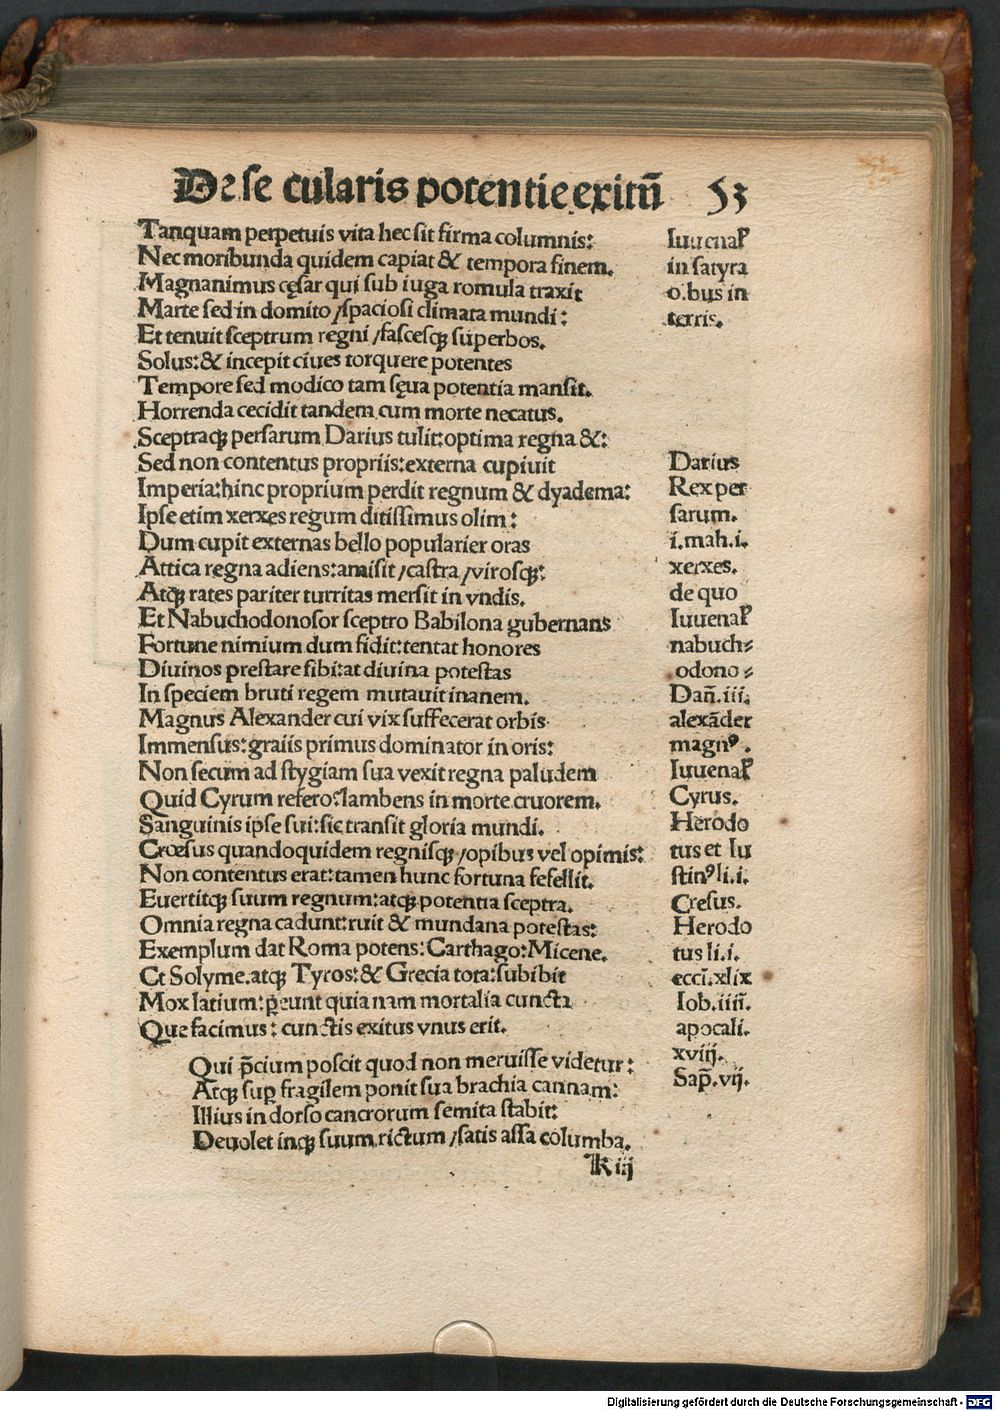 De se cularis potentie exitū 53
Tanquam perpetuis vita hec sit firma columnis:
Nec moribunda quidem capiat & tempora finem.
Magnanimus cęsar qui sub iuga romula traxit
Marte sed in domito /spaciosi climata mundi:
Et tenuit sceptrum regni /fascesq; superbos.
Solus: & incepit ciues torquere potentes
Tempore sed modico tam sęua potentia mansit.
Horrenda cecidit tandem cum morte necatus.
Sceptraq; persarum Darius tulit: optima regna &:
Sed non contentus propriis: externa cupiuit
Imperia: hinc proprium perdit regnum & dyadema:
Ipse etim xerxes regum ditissimus olim:
Dum cupit externas bello popularier oras
Attica regna adiens: amisit /castra /virosq;:
Atq; rates pariter turritas mersit in vndis.
Et Nabuchodonosor sceptro Babilona gubernans
Fortune nimium dum fidit: tentat honores
Diuinos prestare sibi: at diuina potestas
In speciem bruti regem mutauit inanem.
Magnus Alexander cui vix suffecerat orbis
Immensus: graiis primus dominator in oris:
Non secum ad stygiam sua vexit regna paludem
Quid Cyrum refero? lambens in morte cruorem.
Sanguinis ipse sui: sic transit gloria mundi.
Crœsus quandoquidem regnisq; /opibus vel opimis:
Non contentus erat: tamen hunc fortuna fefellit.
Euertitq; suum regnum: atq; potentia sceptra.
Omnia regna cadunt: ruit & mundana potestas:
Exemplum dat Roma potens: Carthago: Micene.
Et Solyme. atq; Tyros: & Grecia tota: subibit
Mox latium: ꝑeunt quia nam mortalia cuncta
Que facimus: cunctis exitus vnus erit.
Qui p̄cium poscit quod non meruisse videtur:
Atq; suꝑ fragilem ponit sua brachia cannam:
Illius in dorso cancrorum semita stabit:
Deuolet inq; suum rictum /satis assa columba.
k iij
Iuuenal̕
in satyra
o.bus in
terris.
Darius
Rex per
sarum.
i.mah.i.
xerxes.
de quo
Iuuenal̕
nabuch⸗
odono⸗
Dan̄.iii.
alexāder
magnꝰ.
Iuuenal̕
Cyrus.
Herodo
tus et Iu
stinꝰ li.i.
Cresus.
Herodo
tus li.i.
eccī.xlix
Iob.iiii.
apocali.
xviij.
Sap̄.vij.
Digitalisierung gefördert durch die Deutsche Forschungsgemeinschaft - DFG